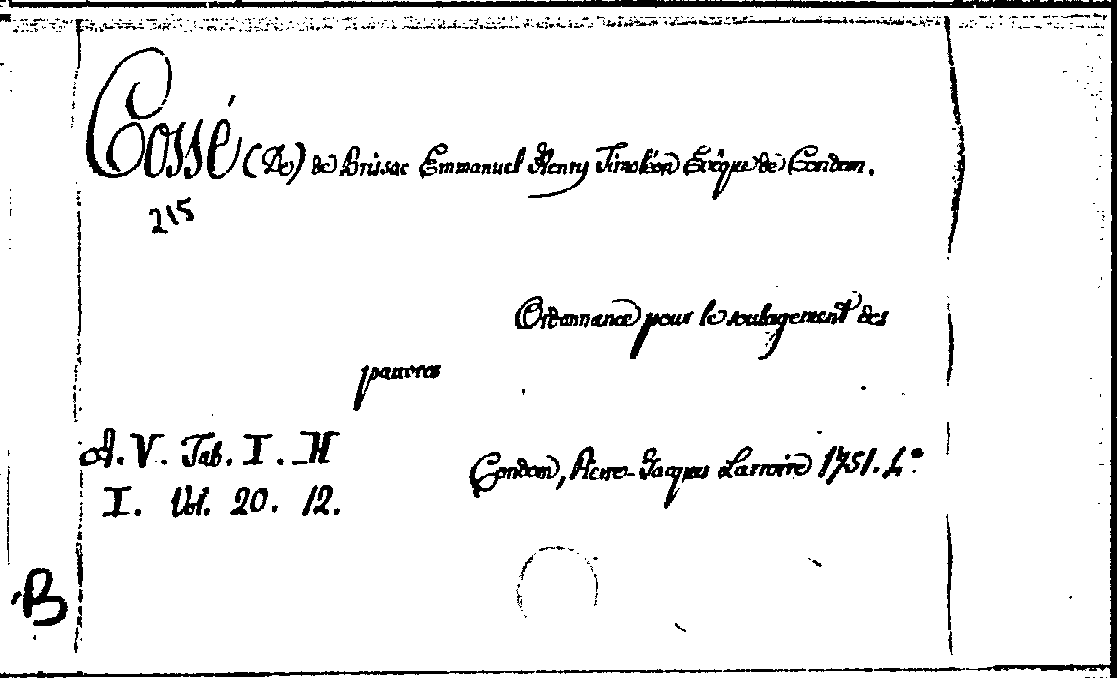 Cossé (De) de Brissac Emmanuel Henry Timoléon Evêque de Condom.
215
Ordonnance pour le soulagement des
pauvres
A. V. Tab. I. H
Condom, Pierre-Jacques Larroire 1751. 4°
I. Vol. 20. 12.
B